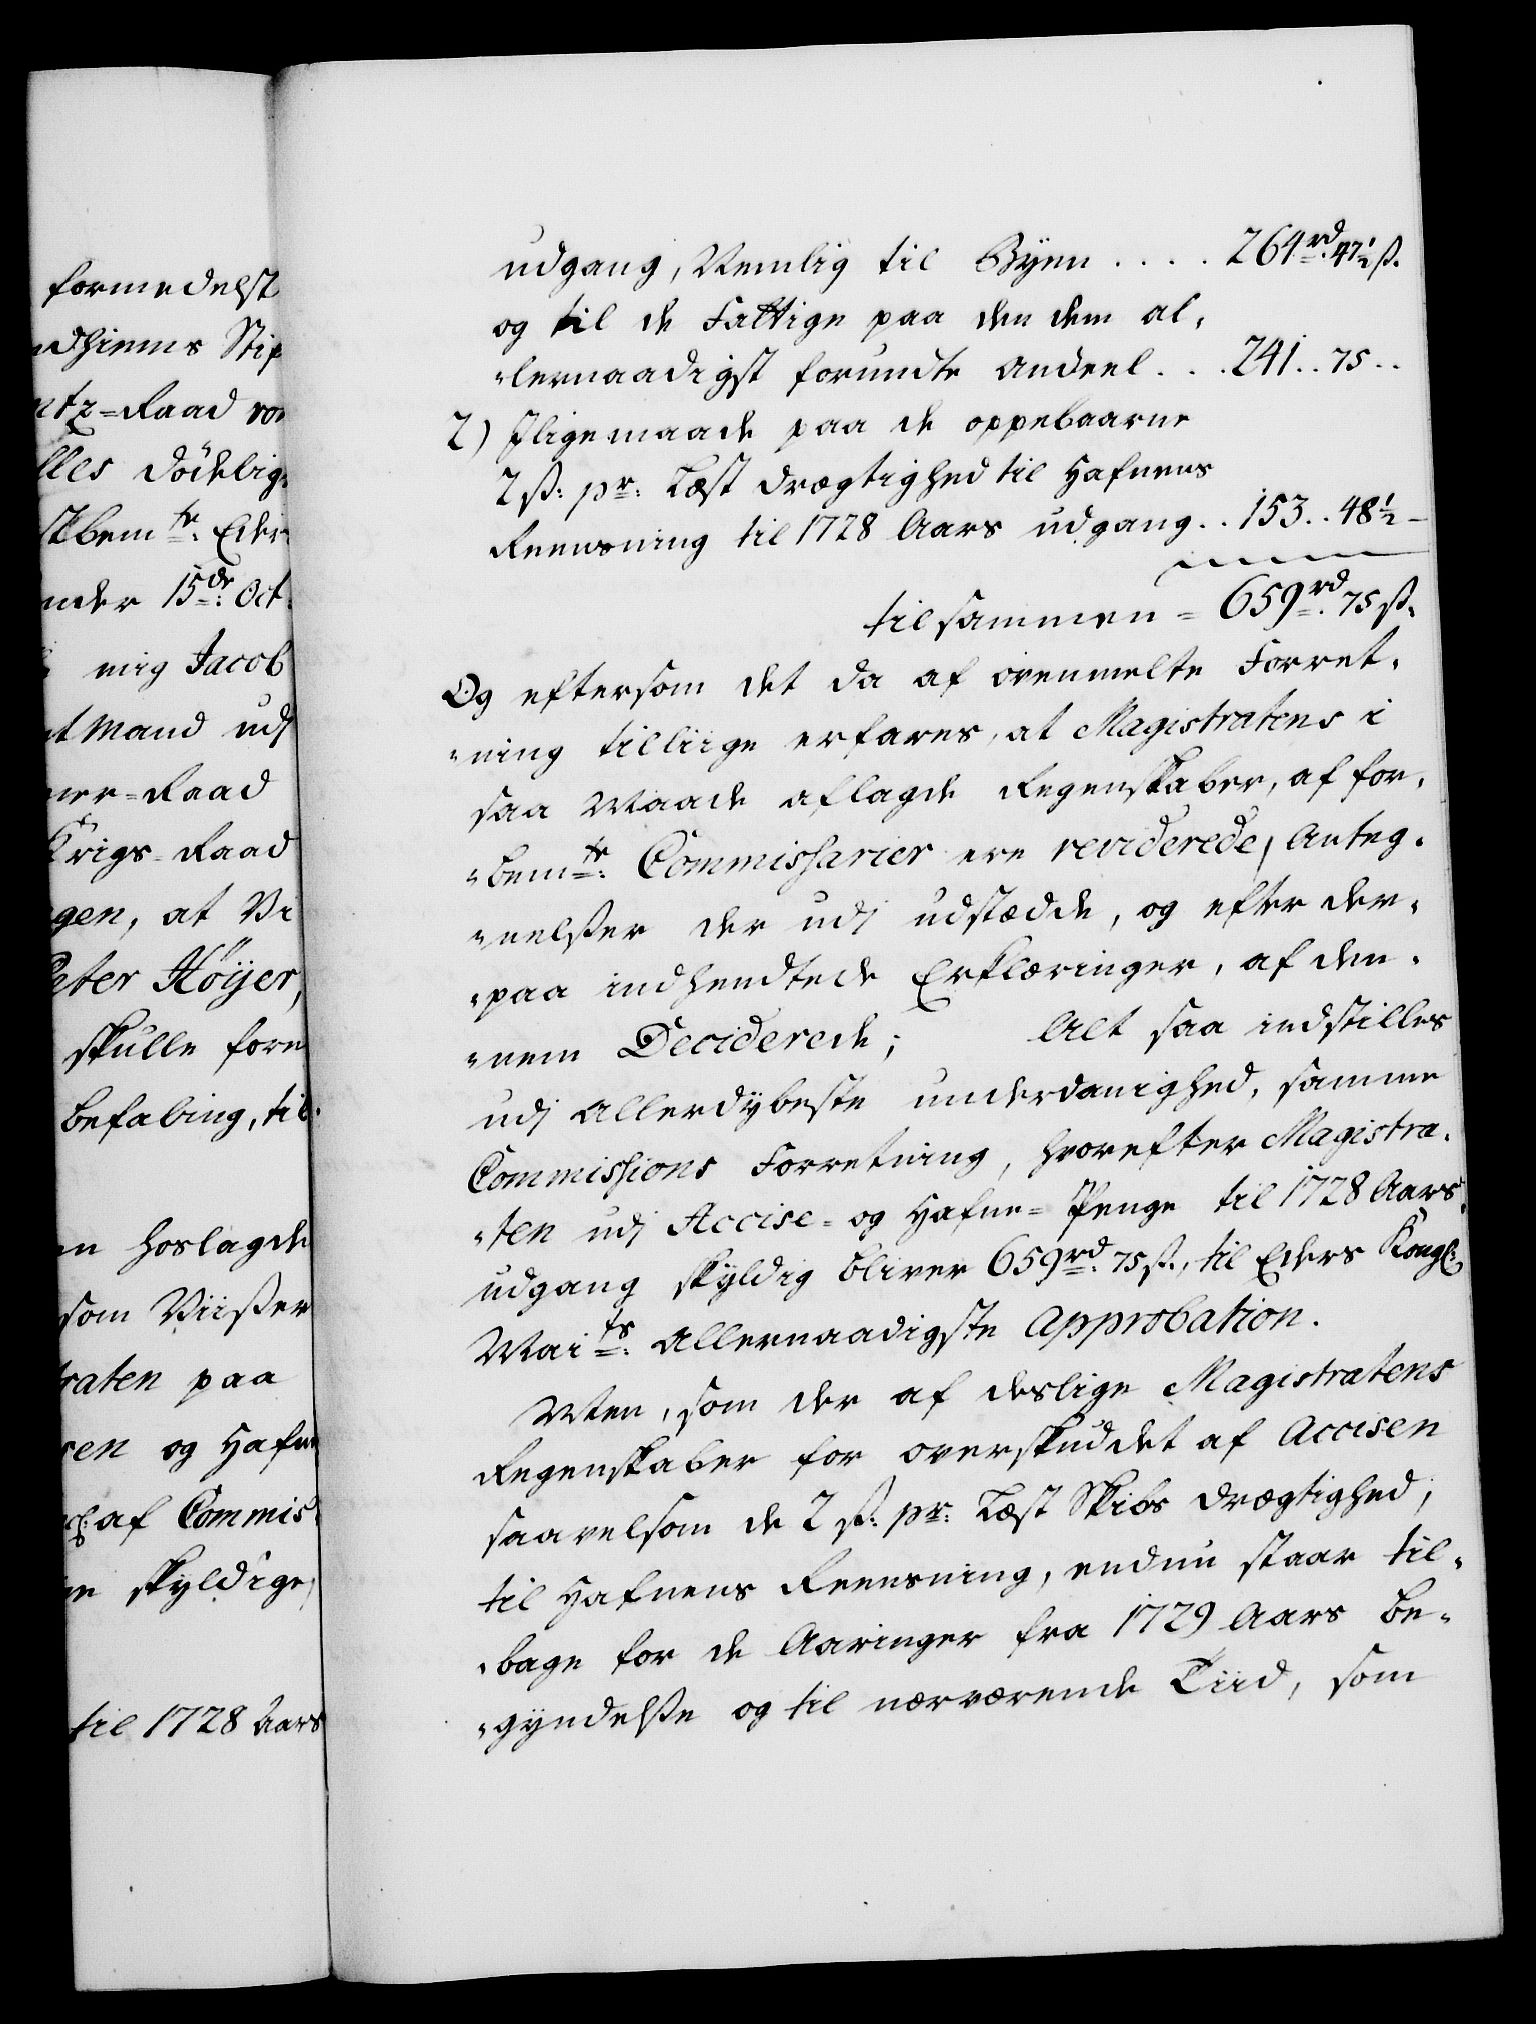 formedelst
dhiems Stif
ntz=Raad von
lles dödelig
skbem.te Eders
nder 15de Oct:
mig Jacob
t Mand udj
mer=Raad
Krigs=Raad
gen, at Vi
Peter Höijer,
skulle fore
befaling, til
n hoslagde
som Viißer
raten paa
sen og Hafne
af Commis
skyldige,
til 1728 Aars
udgang, Nemlig til Byen .... 264rd. 47½ ß.
og til de Fattige paa den dem al,
"lernaadigst forundte Andeel ... 241 .. 75 ..
2) Iligemaade paa de oppebaarne
2 ß: pr: Læst drægtighed til Hafnens
Reensning til 1728 Aars udgang .. 153 .. 48½ -
tilsammen = 659rd. 75 ß.
Og eftersom det da af ovenmelte Forret,
"ning tilliige erfares, at Magistratens i
saa Maade aflagde Regenskaber, af for,
"bem.te Commissarier ere reviderede, Anteg,
"nelßer der udj udstædde, og efter der,
"paa indhendtede Erklæringer, af den,
"nem Deciderede; Alt saa indstilles
udj allerdybeste underdanighed, samme
Commissions Forretning, hvorefter Magistra,
"ten udj Accise= og Hafne=Penge til 1728 Aars
udgang skyldig bliver 659rd. 75 ß., til Eders Kongl:
Mai.ts allernaadigste Approbation.
Men, som der af deslige Magistratens
Regenskaber for overskuddet af Accisen
saavelsom de 2 ß: pr: Læst Skibs drægtighed,
til Hafnens Reensning, endnu staar til,
"bage for de Aaringer fra 1729 Aars be,
"gyndelße og til nærværende Tiid, som